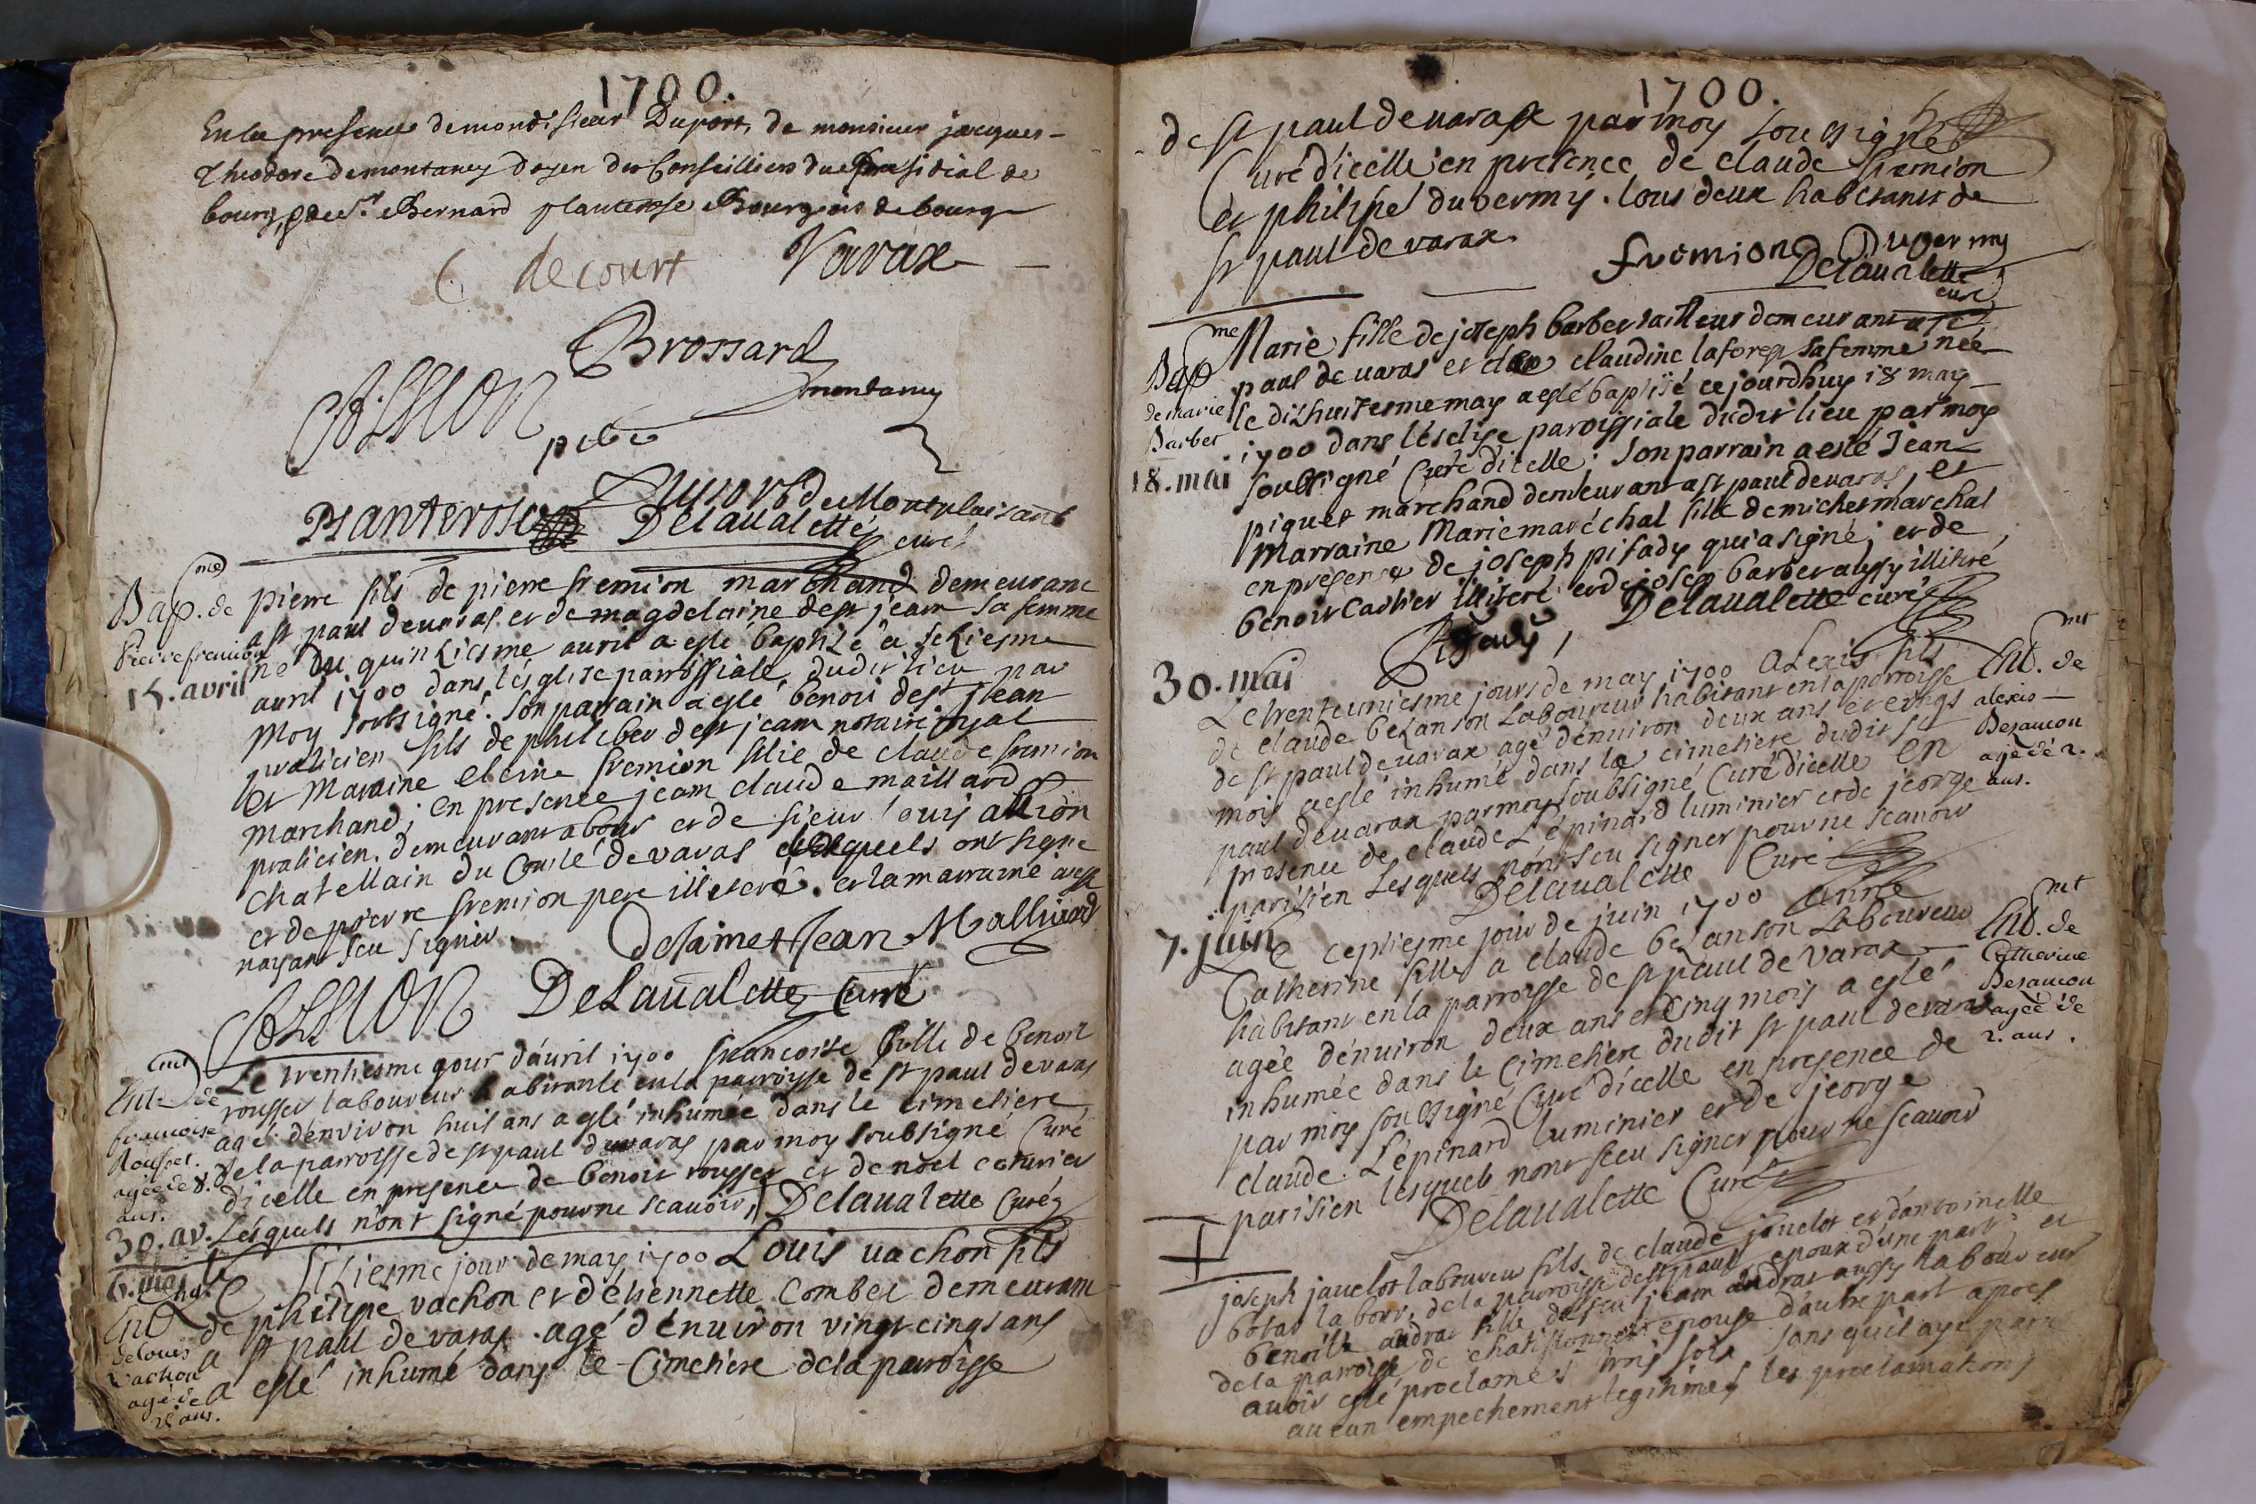 1700.
En la presence de mondit sieur Duport, de monsieur jacques-
Theodore demontaney doyen des Conseilliers du presidial de
bourg, & de Sr Bernard planterose Bourgeois de bourg
C decourt Varax
Brossard
montaney
Allion
Duport de Montplaisant
Planterose Delavalette curé
Bap.me de
Pierre fremion
15. avril
pierre fils de pierre fremion marchand demeurant
a st paul devaras et de magdelaine de st jean sa femme
né du quinziesme avril a esté baptizé ce seziesme
avril 1700 dans l'église parroissiale dudit lieu par
moy soubsigné. Son parrain a esté benoit de st jean
praticien fils de philiber de st jean notaire royal
et Maraine fremion fille de claude fremion
marchand; en presence jean claude maillard
praticien demeurant a bourg et de sieur louis allion
chatellain du Comté de varas lesquels ont signé
et de pierre fremion pere illiteré. et la marraine
nayant sceu signer.
desainct Jean Malliard
Allion Delavalette Curé
Ent.mt de
francoise
Rousset.
agée de 8.
ans.
30. av.
Le trentiesme jour d'avril 1700 francoise fille de benoit
rousset laboureur habitante en la parroisse de st paul devaras
agé d'environ huit ans a esté inhumée dans le cimetiere
de la parroisse de st paul devaras par moy soubsigné Curé
d'icelle en presence de benoit rousset et de noel
Lesquels n'ont signé pour ne scavoir, Delavalette Curé
6. may
Ent.mt
de Louis
Vachon
agé de
25 ans.
Le siziesme jour de may 1700 Louis vachon fils
de philipe vachon et d'étiennette Combet demeurant
a st paul de varas agé d'énviron vingt cinqs ans
a esté inhumé dans le Cimetiere de la parroisse
1700.
de st paul de varax par moy sousigné
Curé d'icelle en presence de claude fremion
et philipe duvermy. tous deux habitants de
st paul de varax
fremion Duvermy
Delavalette
curé
Bap.me
de marie
Barbet
18. mai
Marie fille de joseph barbet tailleur demeurant a st
paul de varas et claudine laforest sa femme née
le dixhuitiesme may a esté baptisé ce jourdhuy 18 may
1700 dans l'eslise paroissiale dudit lieu par moy
soubsigné Curé d'icelle; son parrain a esté Jean
piquet marchand demeurant a st paul devaras, et
marraine Marie maréchal fille de michel marchal
en presence de joseph pisady qui a signé; et de
benoit cartier illiteré et de joseph barbet aussy illitiré
Pisady, Delavalette curé
30. mai
Ent.mt de
alexis
Besancon
agé de 2.
ans.
Le trenteuniesme jours de may 1700 Alexis fils
de claude bezanson Laboureur habitant en la parroisse
de st paul de varax agé d'énviron deux ans et cinqs
mois a esté inhumé dans le cimetiere dudit st
paul devarax par moy soubsigné Curé d'icelle en
presence de claude L'épinard luminier et de jeorge
parisien Lesquels n'ont sceu signer pour ne scavoir
Delavalette Curé
7. juin
Ent.mt de
Catherine
Besancon
agée de
2. ans.
Le ceptiesme jour de juin 1700 anne
Catherine fille a claude bezanson Laboureur
habitant en la parroisse de st paul de varax
agée d'énviron deux ans et cinq mois a esté
inhumée dans le cimetiere dudit st paul devaras
par moy soubsigné Curé d'icelle en presence de
claude L'épinard luminier et de jeorge
parisien lesquels n'ont sceu signer pour ne scavoir
Delavalette Curé
joseph javelot laboureur fils de claude javelot et d'antoinette
botas la bour. de la parroisse de st paul epoux d'une part et
benoite audras fille de feu jean audras aussy laboureur
de la parroisse de chatillonnet epouse d'autre part apres
avoir esté proclamés trois fois sans quil aye paru
aucun empechement legitimes les proclamations